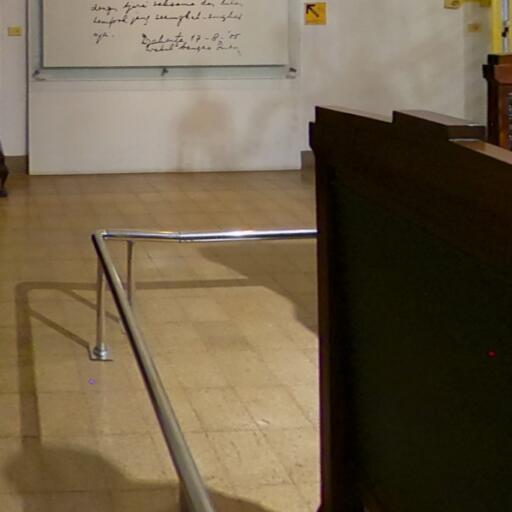 dengan tjara saksama dan dalam
tempoh jang sesingkat-singkat
nja.
Djakarta, 17-8-'05
Wakil bangsa Indon,